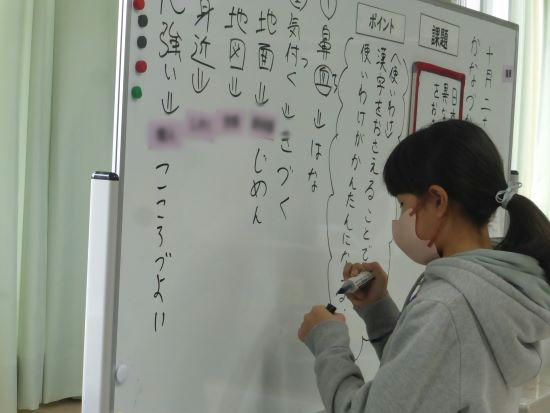 十月二
かなづか
課題
日
異な
をお
ポイント
〈使いわけ〉
漢字をおさえることで
使いわけがかんたんにな
①鼻血⇒はな
②気付く⇒きづく
地面⇒じめん
地図⇒
身近⇒
心強い⇒こころづよい